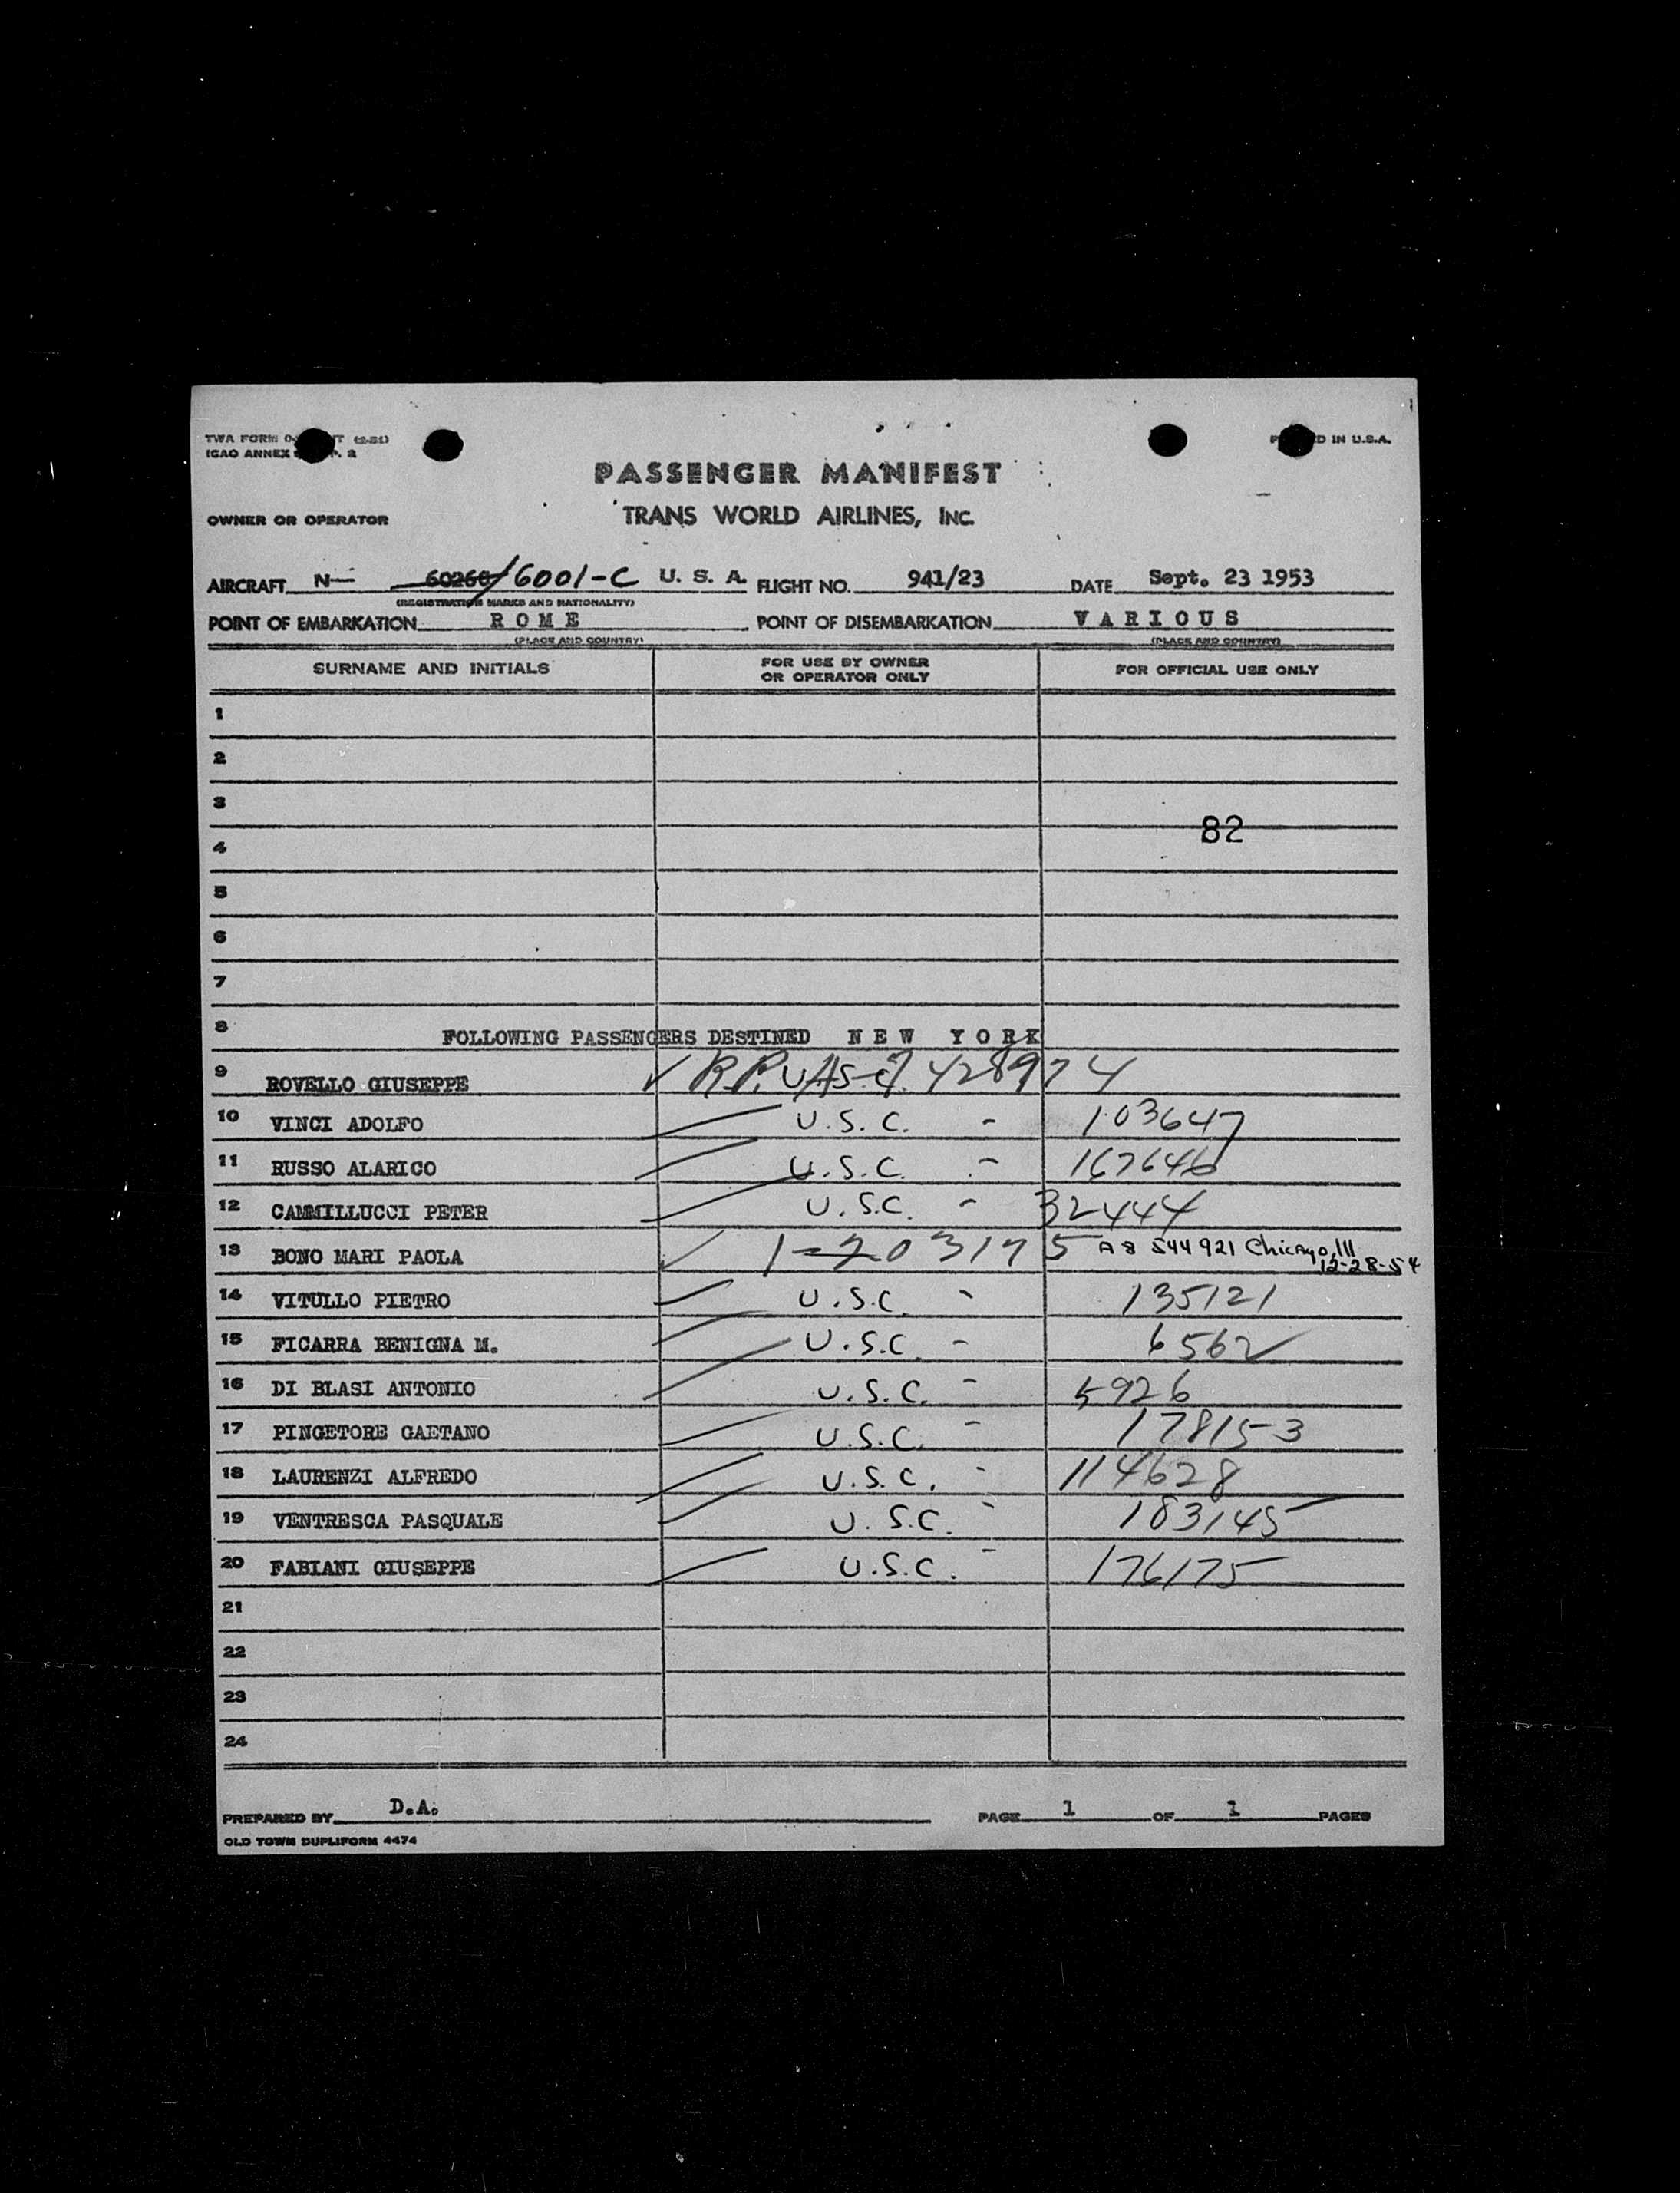 TWA FORM (2-51)
ICAO ANNEX P. 2
IN U.S.A.
PASSENGER MANIFEST
OWNER OR OPERATOR TRANS WORLD AIRLINES, INC.
AIRCRAFT N- 60260/6001-C U. S. A. FLIGHT NO. 941/23 DATE Sept. 23 1953
(REGISTRATION MARKS AND NATIONALITY)
POINT OF EMBARKATION R O M E POINT OF DISEMBARKATION V A R I O U S
(PLACE AND COUNTRY) (PLACE AND COUNTRY)
SURNAME AND INITIALS FOR USE BY OWNER OR OPERATOR ONLY FOR OFFICIAL USE ONLY
1
2
3
82
4
5
6
7
8 FOLLOWING PASSENGERS DESTINED N E W Y O R K
9 ROVELLO GIUSEPPE ✓ R.P. 428974
10 VINCI ADOLFO U.S.C. - 103647
11 RUSSO ALARICO U.S.C. - 167646
12 CAMMILLUCCI PETER U.S.C. - 32444
13 BONO MARI PAOLA ✓ 1-203175 A8 544 921 Chicago, Ill
12-28-54
14 VITULLO PIETRO U.S.C. - 135121
15 FICARRA BENIGNA M. U.S.C. - 6562
16 DI BLASI ANTONIO U.S.C. - 5926
17 PINGETORE GAETANO U.S.C. - 178153
18 LAURENZI ALFREDO U.S.C. - 114628
19 VENTRESCA PASQUALE U.S.C. - 183145
20 FABIANI GIUSEPPE U.S.C. - 176175
21
22
23
24
PREPARED BY D.A. PAGE 1 OF 1 PAGES
OLD TOWN DUPLIFORM 4474